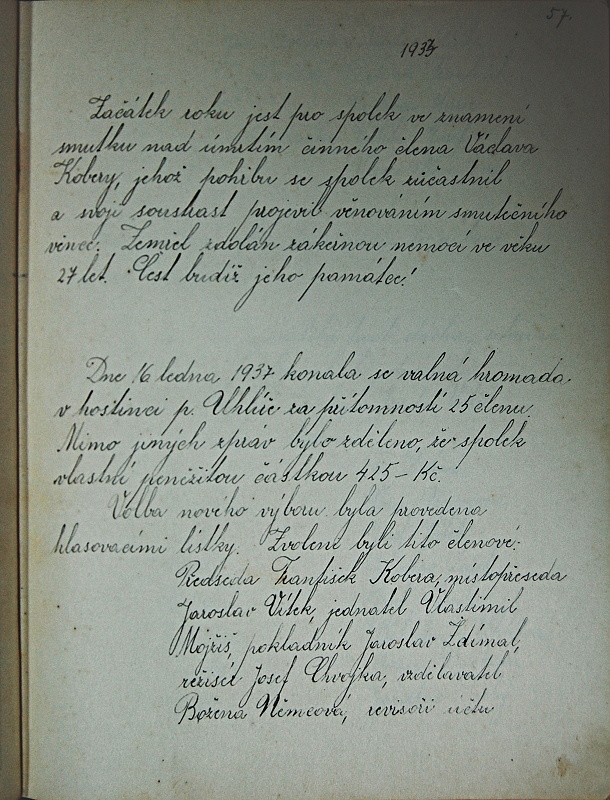 57.
1937
Začátek roku jest pro spolek ve znamení
smutku nad úmrtím činného člena Václava
Kobery, jehož pohřbu se spolek zúčastnil
a svoji soustrast projevil věnováním smutečního
věnce. Zemřel zdolán zákeřnou nemocí ve věku
27 let. Čest budiž jeho památce!
Dne 16 ledna 1937 konala se valná hromada
v hostinci p. Uhlíře za přítomnosti 25 členu.
Mimo jiných zpráv bylo zděleno, že spolek
vlastní peněžitou částkou 425 – Kč.
Volba nového výboru byla provedena
hlasovacími lístky. Zvoleni byli tito členové:
Předseda František Kobera, místopřeseda
Jaroslav Vítek, jednatel Vlastimil
Mojžíš, pokladník Jaroslav Zdímal,
režisér Josef Chvojka, vzdělavatel
Božena Němcová, revisoři účtu